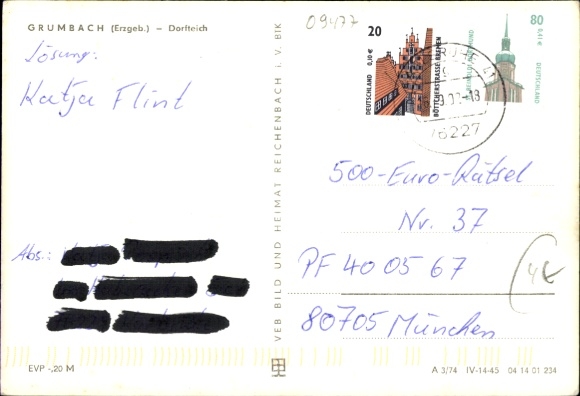 GRUMBACH (Erzgeb.) – Dorfteich
09477
Lösung:
Katja Flint
Abs.:
VEB BILD UND HEIMAT REICHENBACH i. V. BTK
20
0,10 €
DEUTSCHLAND
BÖTTCHERSTRASSE BREMEN
80
0,41 €
DEUTSCHLAND
76227
500-Euro-Rätsel
Nr. 37
PF 40 05 67
80705 München
4€
EVP -,20 M
A 3/74 IV-14-45 04 14 01 234